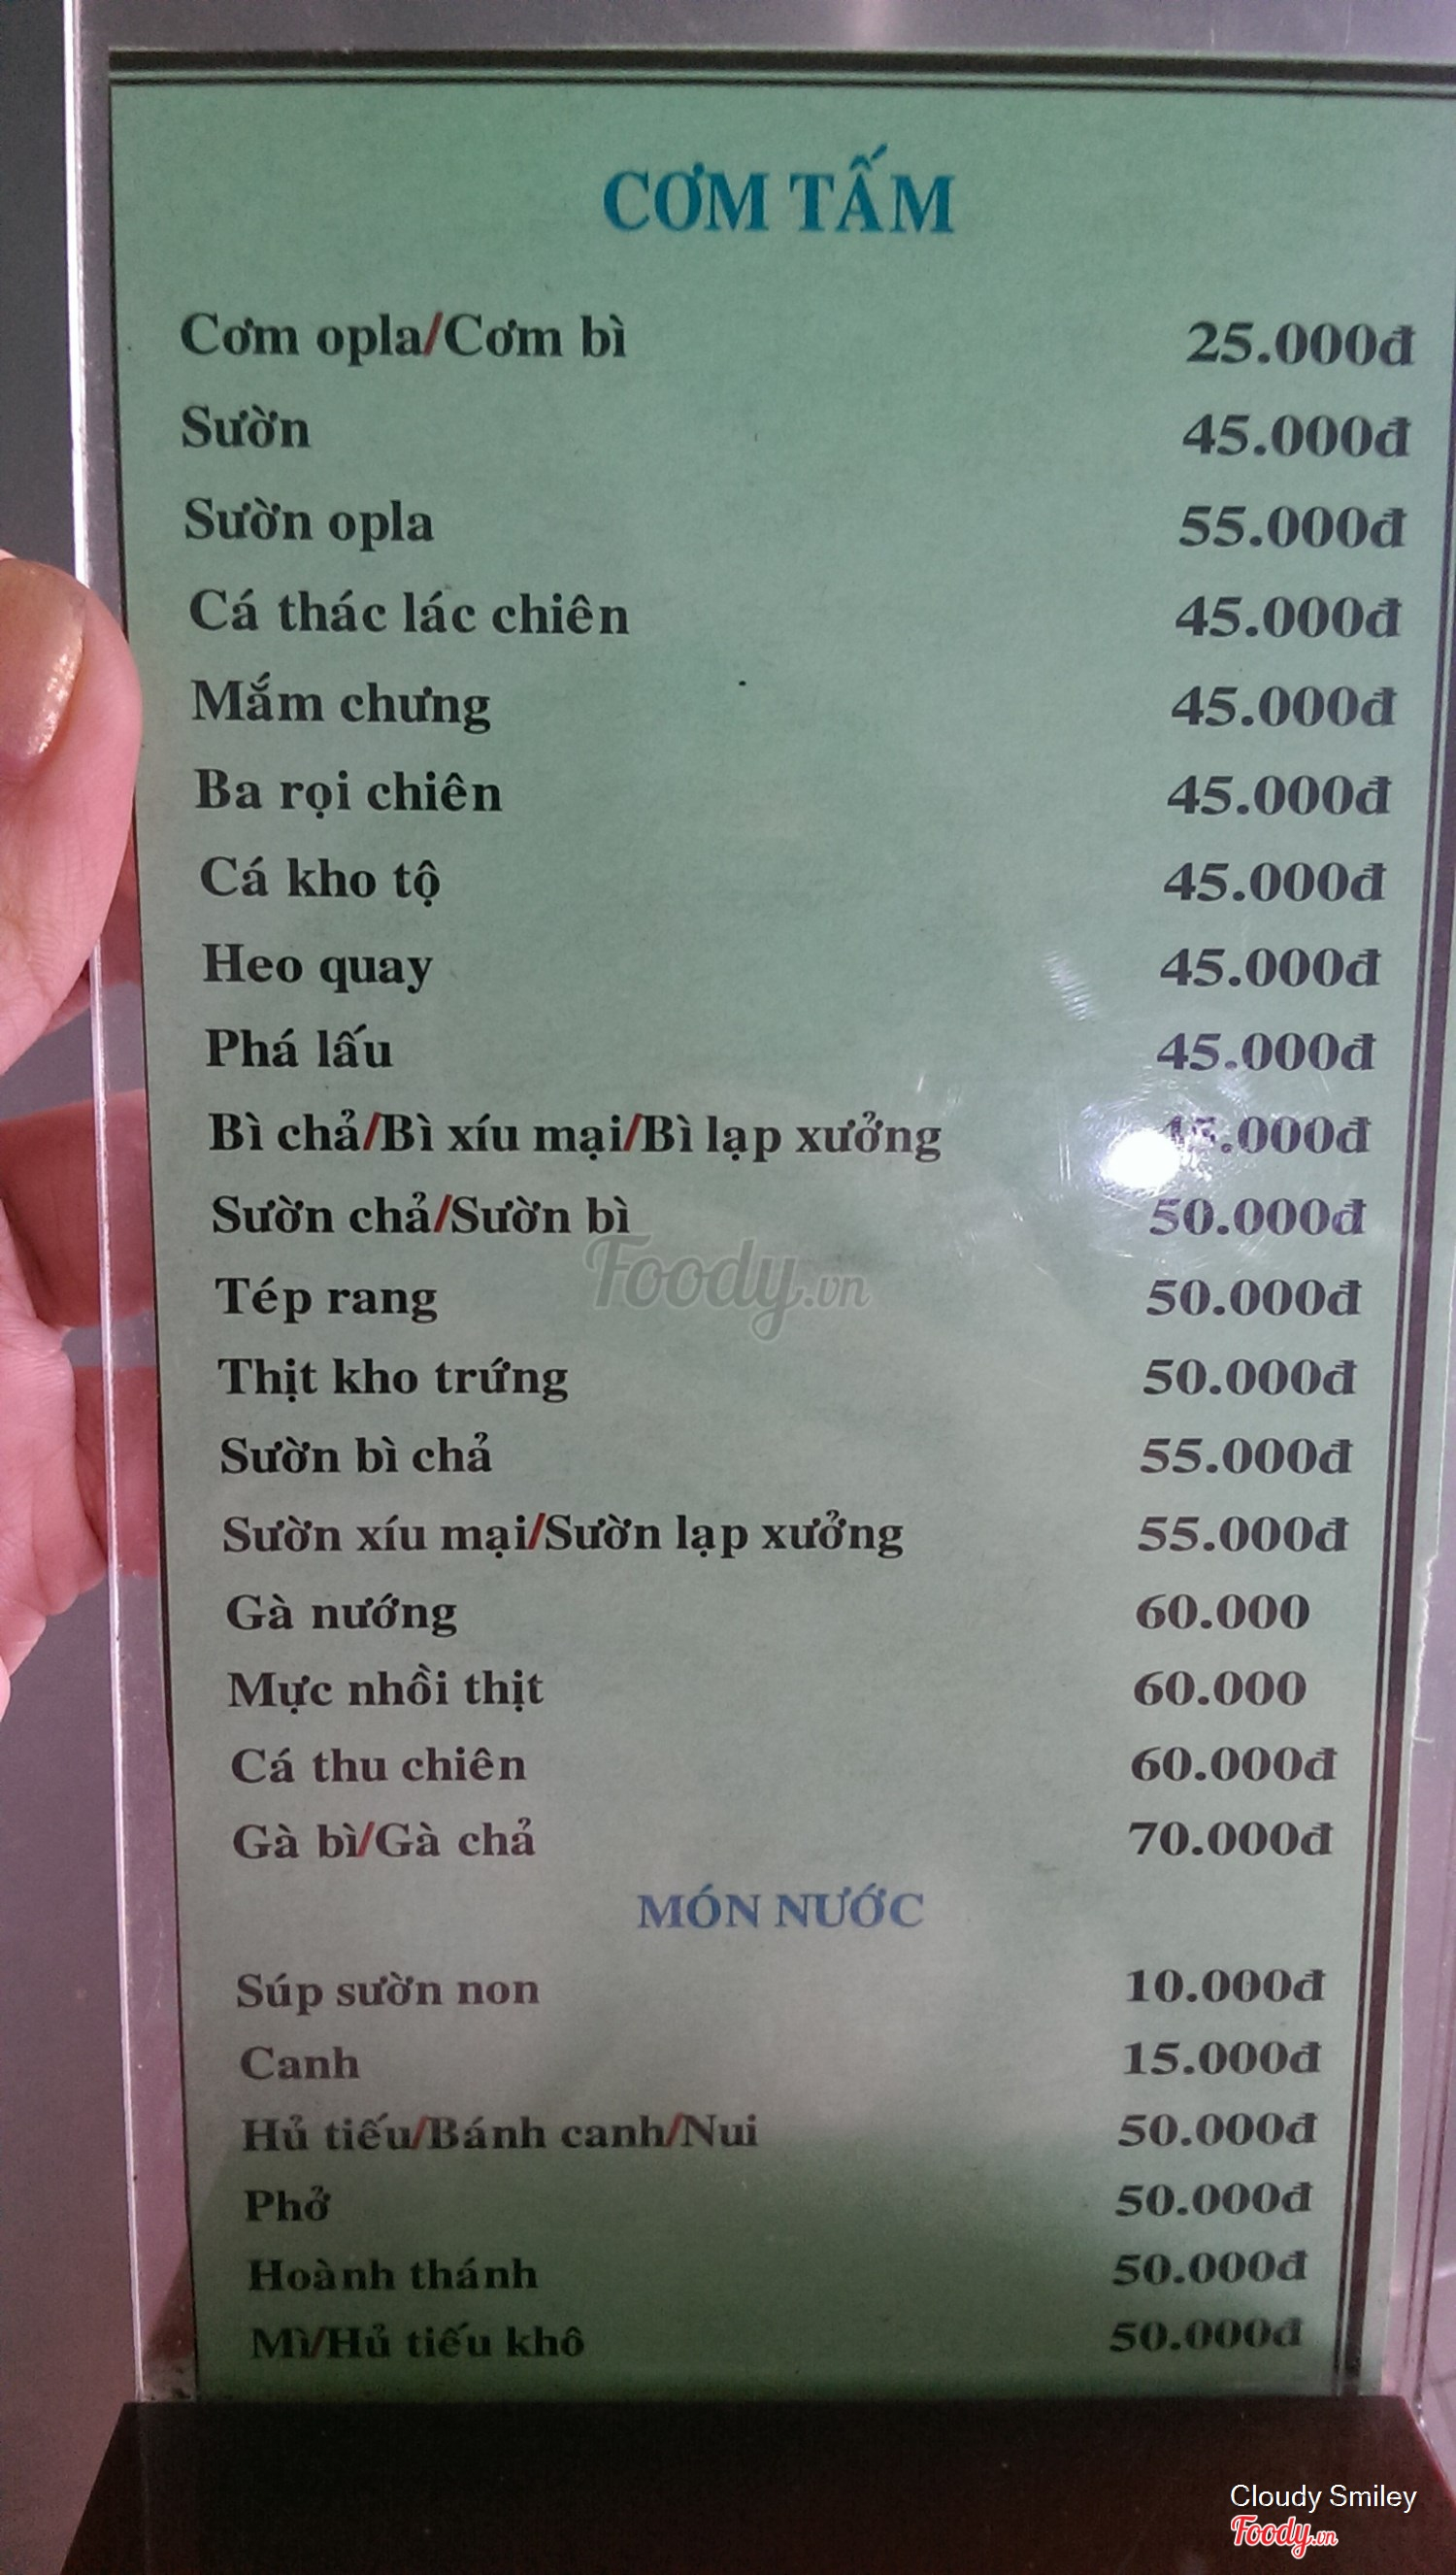 CƠM TẤM
Cơm opla/Cơm bì 25.000đ
Sườn 45.000đ
Sườn opla 55.000đ
Cá thác lác chiên 45.000đ
Mắm chưng 45.000đ
Ba rọi chiên 45.000đ
Cá kho tộ 45.000đ
Heo quay 45.000đ
Phá lấu 45.000đ
Bì chả/Bì xíu mại/Bì lạp xưởng 45.000đ
Sườn chả/Sườn bì 50.000đ
Foody.vn
Tép rang 50.000đ
Thịt kho trứng 50.000đ
Sườn bì chả 55.000đ
Sườn xíu mại/Sườn lạp xưởng 55.000đ
Gà nướng 60.000
Mực nhồi thịt 60.000
Cá thu chiên 60.000đ
Gà bì/Gà chả 70.000đ
MÓN NƯỚC
Súp sườn non 10.000đ
Canh 15.000đ
Hủ tiếu/Bánh canh/Nui 50.000đ
Phở 50.000đ
Hoành thánh 50.000đ
Mì/Hủ tiếu khô 50.000đ
Cloudy Smiley
Foody.vn